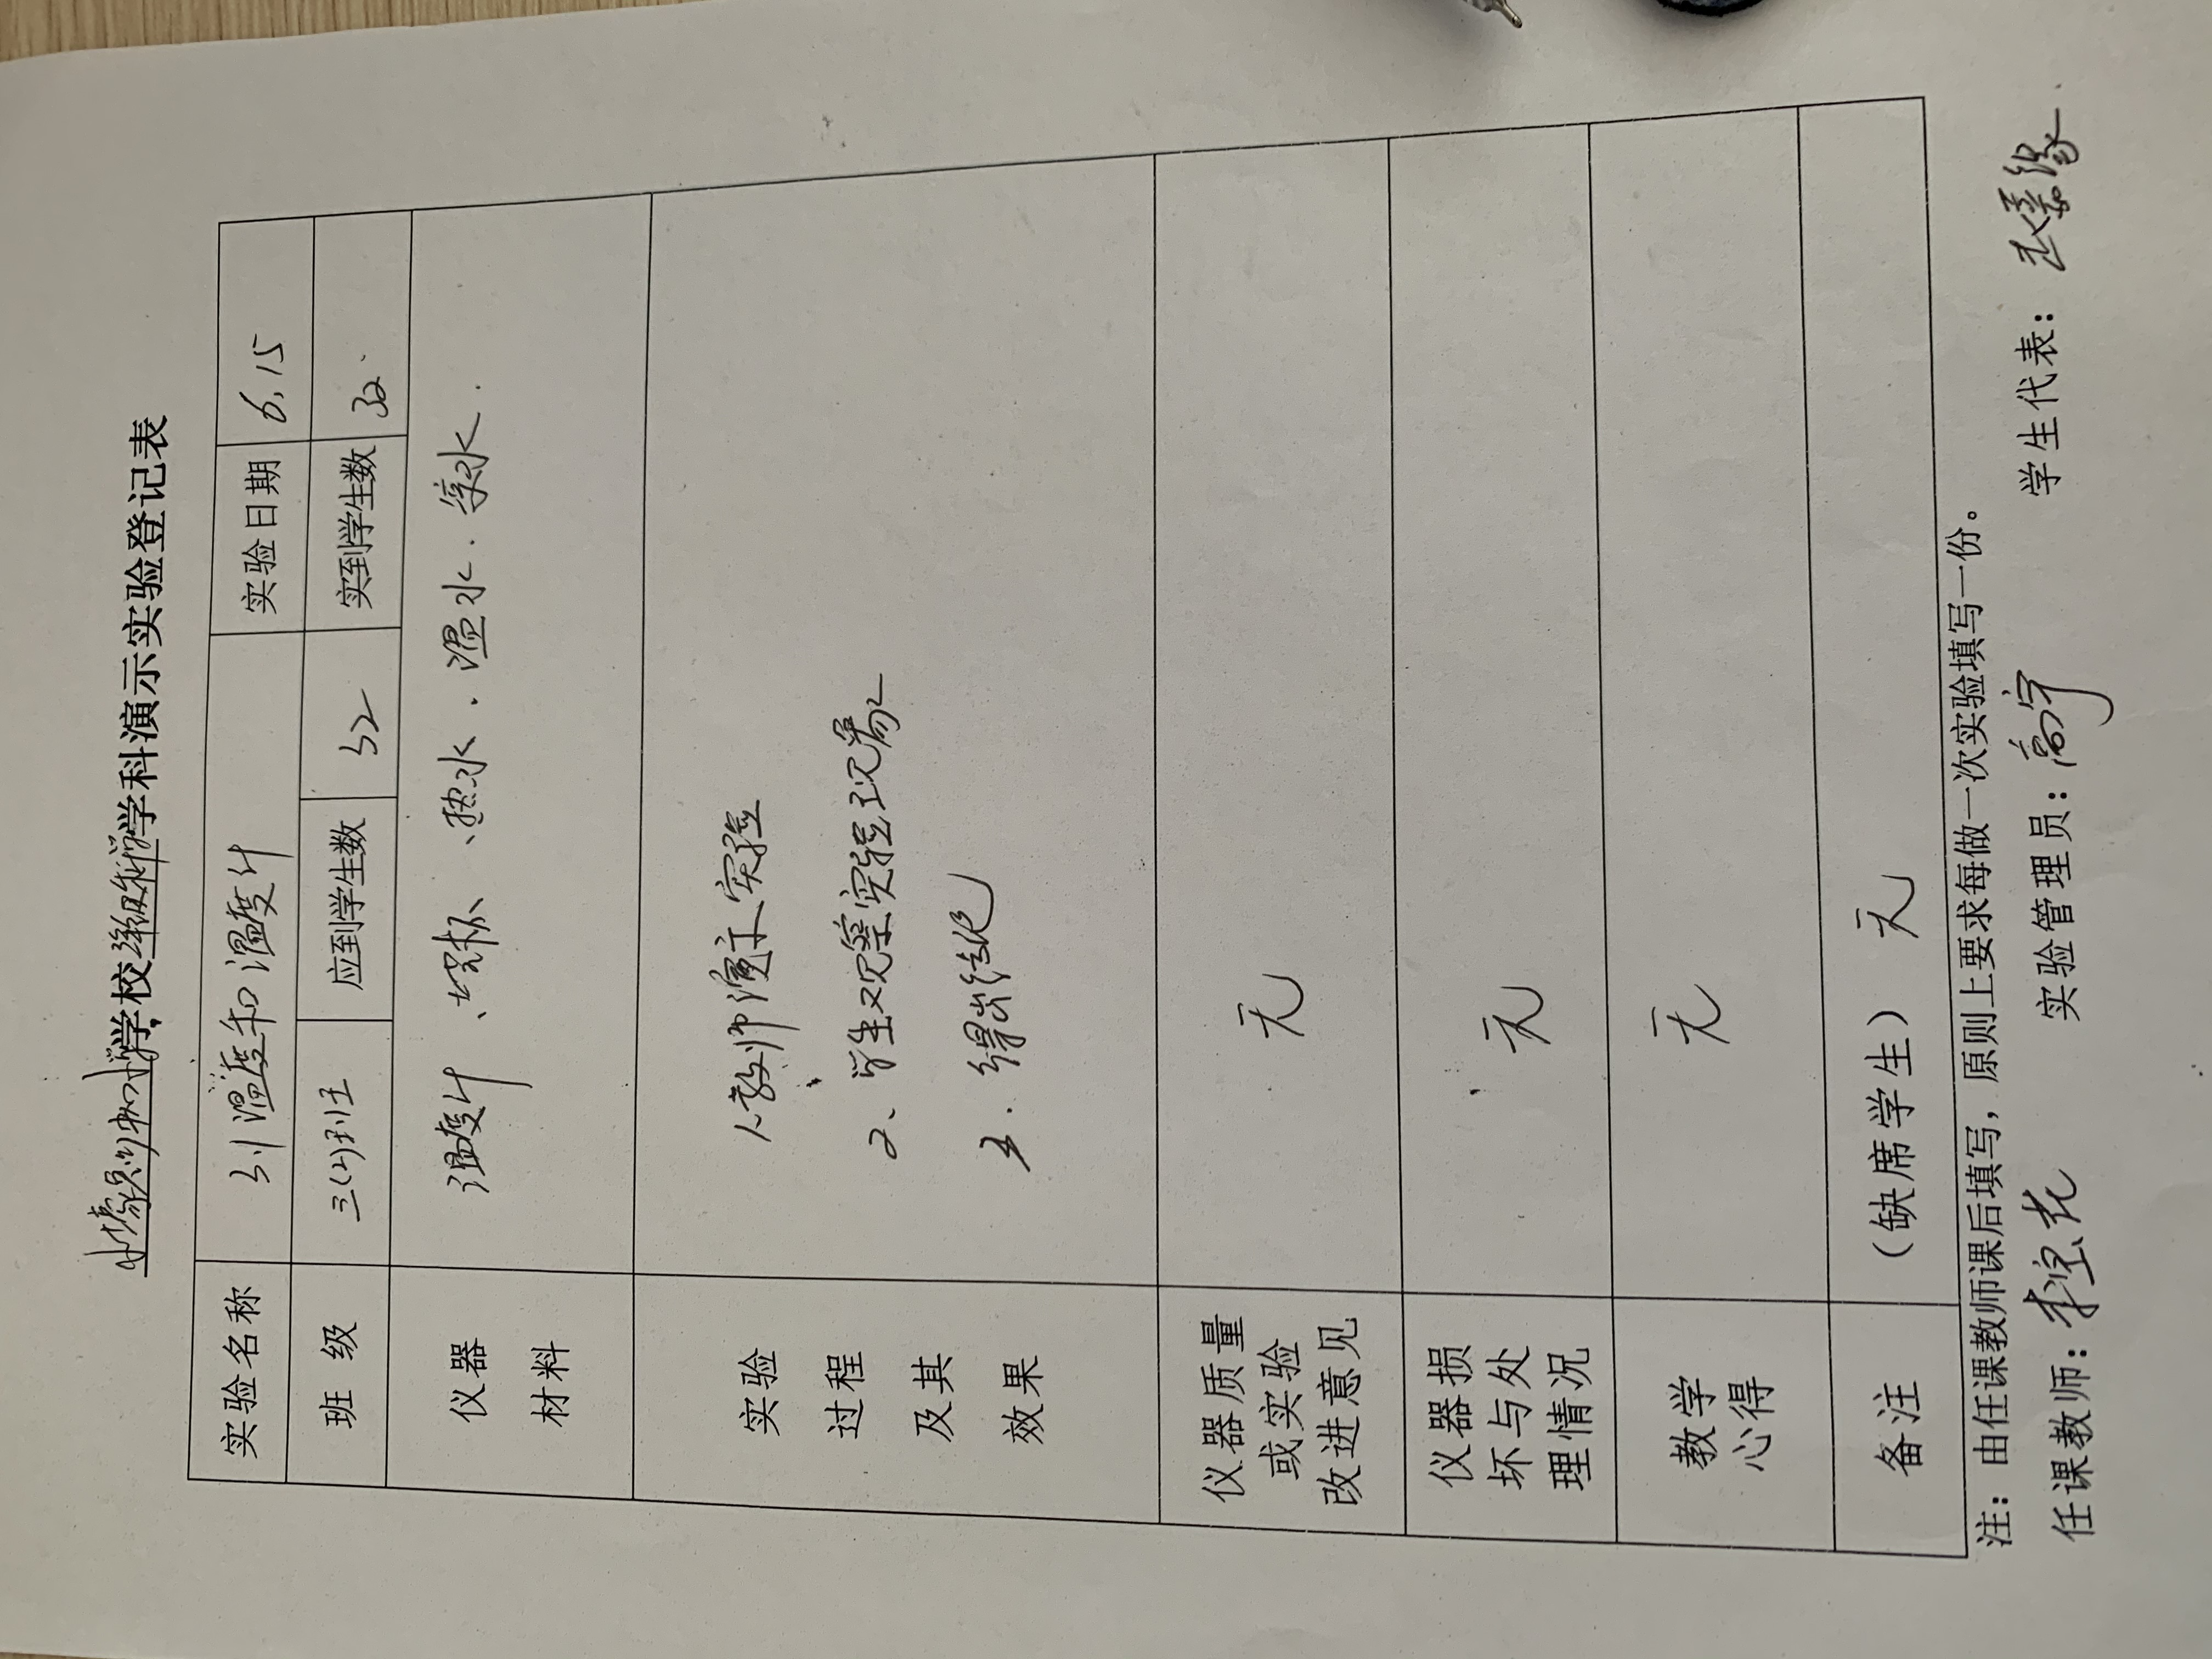 学校三年级科学学科演示实验登记表
实验名称 3.1 温度和温度计 实验日期 6.15
班 级 三(2)班 应到学生数 32 实到学生数 32
仪器 温度计、烧杯、热水.温水.凉水.
材料
实验 1、教师演示实验
过程 2、学生观察实验现象
及其 3.得出结论
效果
仪器质量
或实验 无
改进意见
仪器损
坏与处 无
理情况
教学 无
心得
备注 （缺席学生） 无
注：由任课教师课后填写，原则上要求每做一次实验填写一份。
任课教师： 实验管理员：高宇 学生代表：